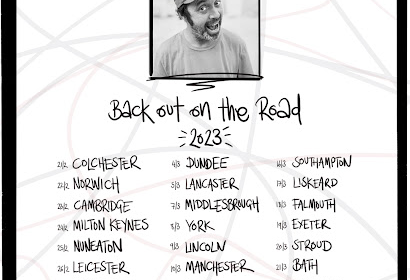 Back out on the Road
2023
21/2 COLCHESTER
22/2 NORWICH
23/2 CAMBRIDGE
24/2 MILTON KEYNES
25/2 NUNEATON
26/2 LEICESTER
4/3 DUNDEE
5/3 LANCASTER
7/3 MIDDLESBROUGH
8/3 YORK
9/3 LINCOLN
10/3 MANCHESTER
16/3 SOUTHAMPTON
17/3 LISKEARD
18/3 FALMOUTH
19/3 EXETER
20/3 STROUD
21/3 BATH